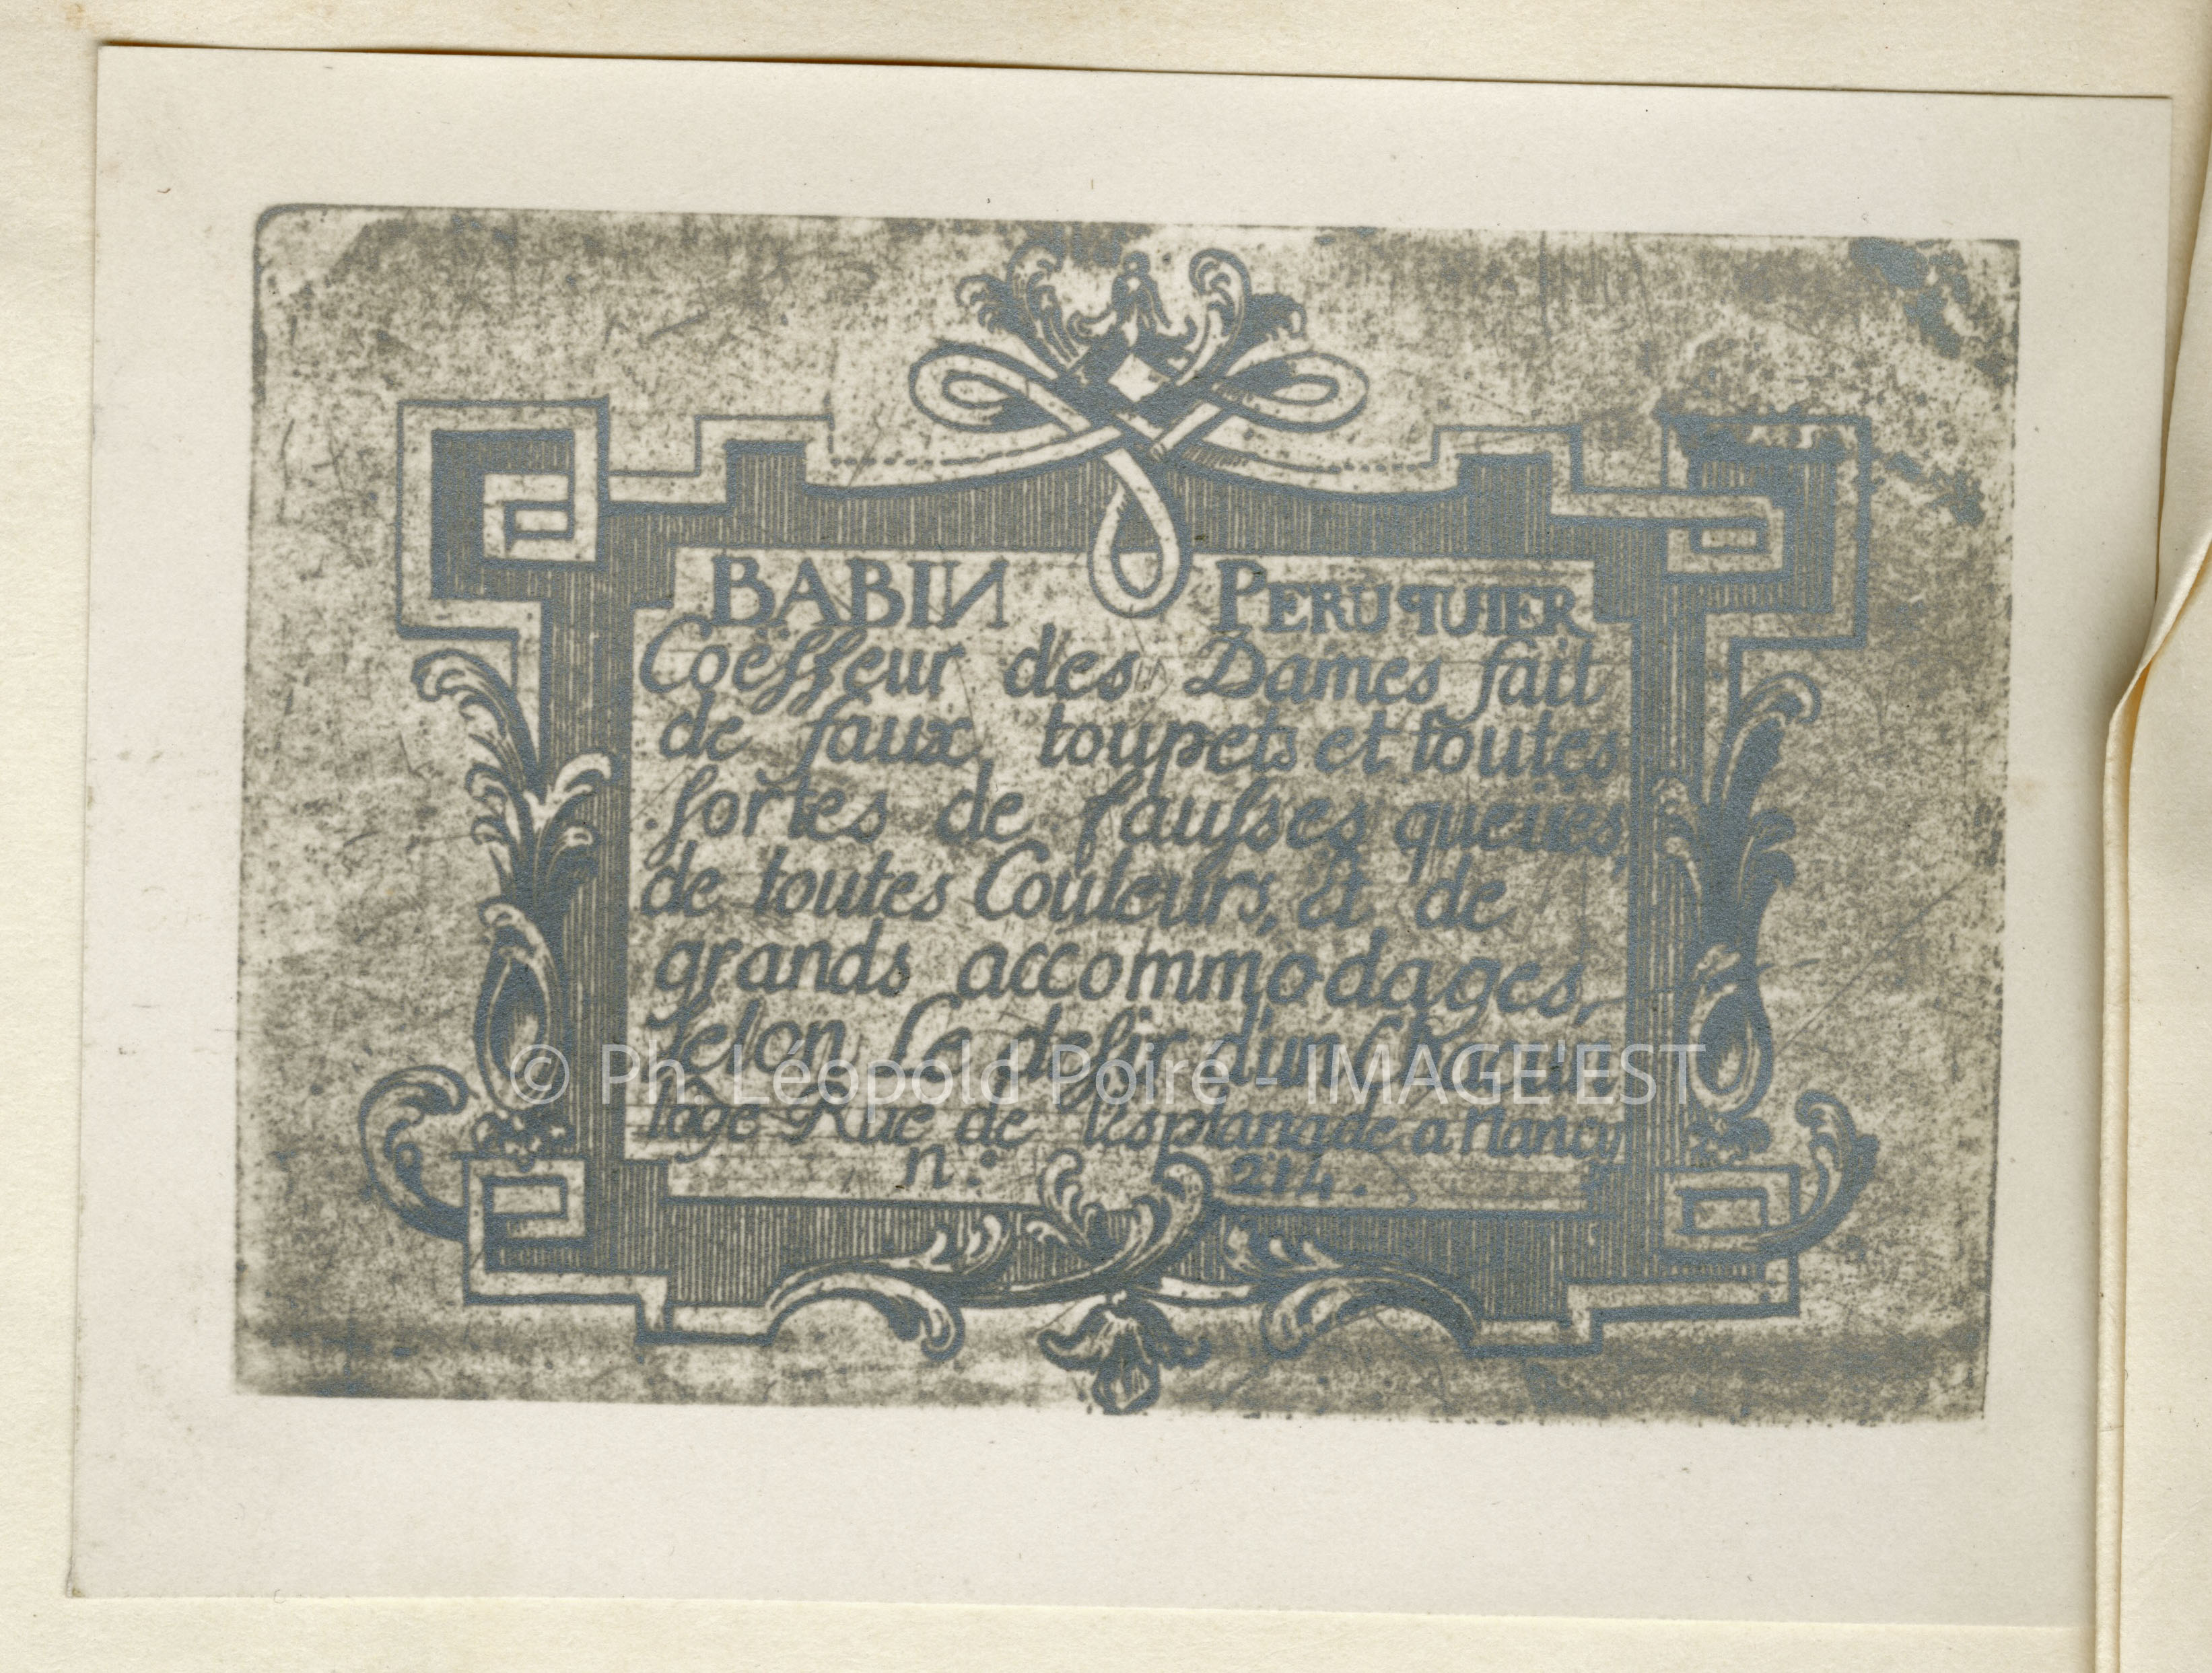 BABIN PERUQUIER
Coëffeur des Dames fait
de faux toupets et toutes
sortes de fausses queües,
de toutes Couleurs, et de
grands accommodages,
selon Le desir d'un Chacun
loge Rue de l'esplanade a Nancy
n: 214.
© Ph. Léopold Poiré - IMAGE'EST